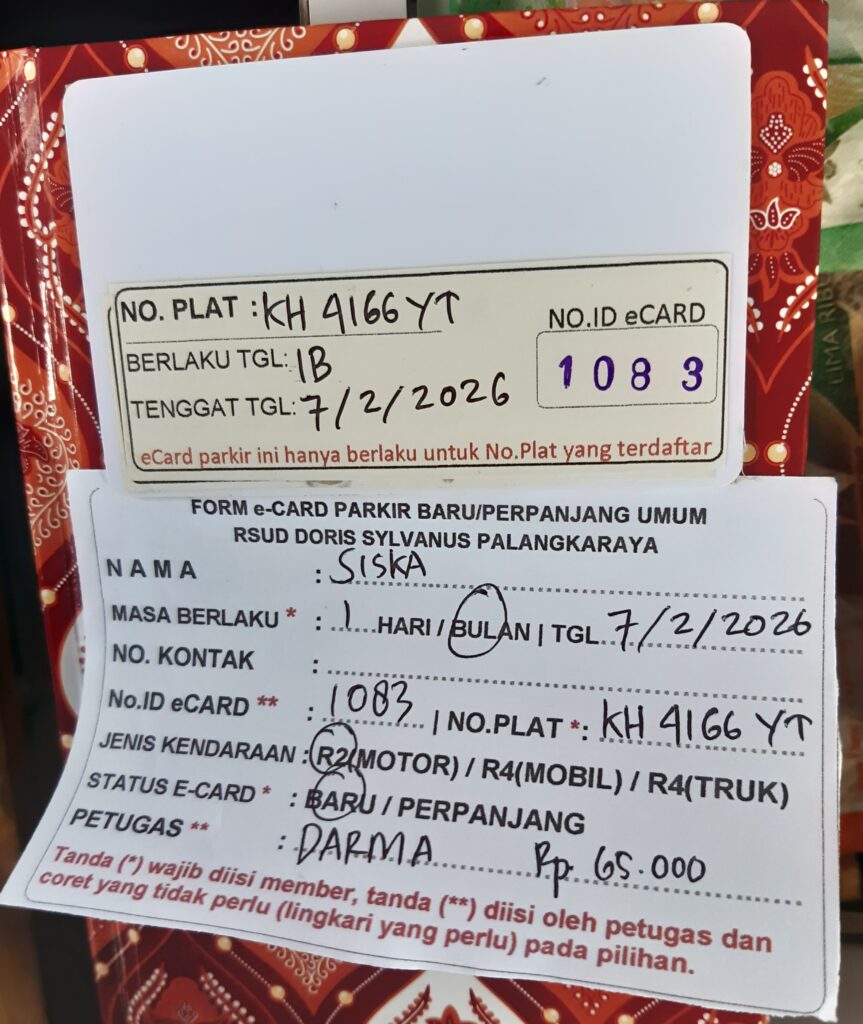 NO. PLAT : KH 4166 YT
BERLAKU TGL: 1B
TENGGAT TGL: 7/2/2026
NO.ID eCARD
1083
eCard parkir ini hanya berlaku untuk No.Plat yang terdaftar
FORM e-CARD PARKIR BARU/PERPANJANG UMUM
RSUD DORIS SYLVANUS PALANGKARAYA
NAMA : SISKA
MASA BERLAKU * : 1 HARI / BULAN | TGL. 7/2/2026
NO. KONTAK :
No.ID eCARD ** : 1083 | NO.PLAT *: KH 4166 YT
JENIS KENDARAAN : R2(MOTOR) / R4(MOBIL) / R4(TRUK)
STATUS E-CARD * : BARU / PERPANJANG
PETUGAS ** : DARMA Rp. 65.000
Tanda (*) wajib diisi member, tanda (**) diisi oleh petugas dan
coret yang tidak perlu (lingkari yang perlu) pada pilihan.